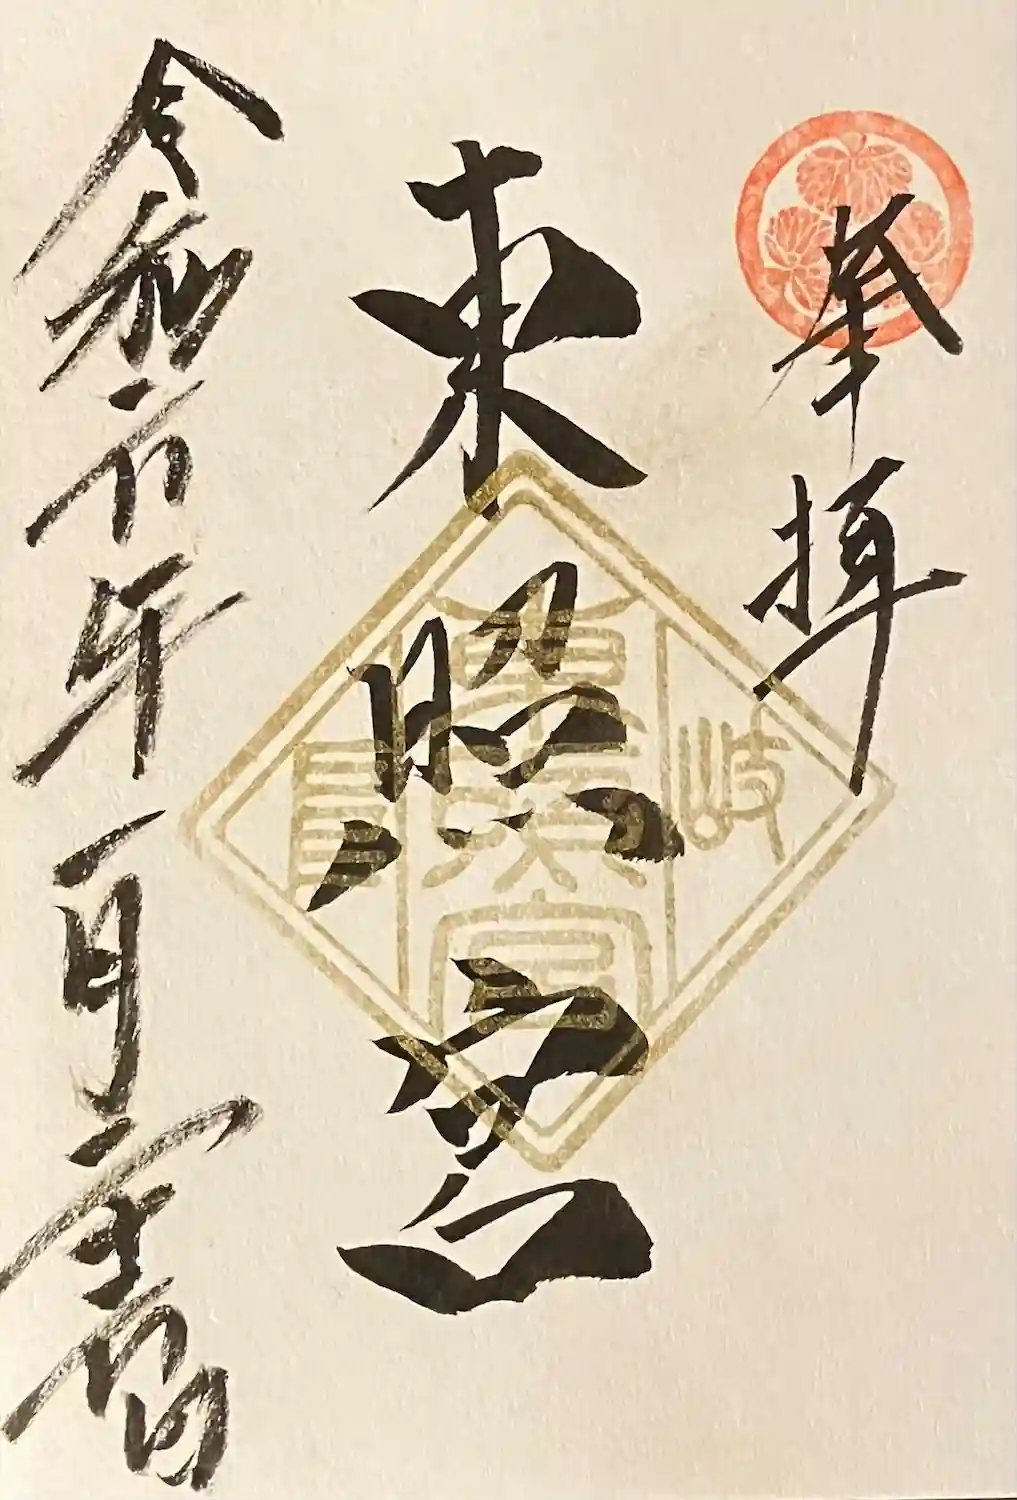 奉拝
東照宮
岐
東照宮
阜
令和六年一月
日